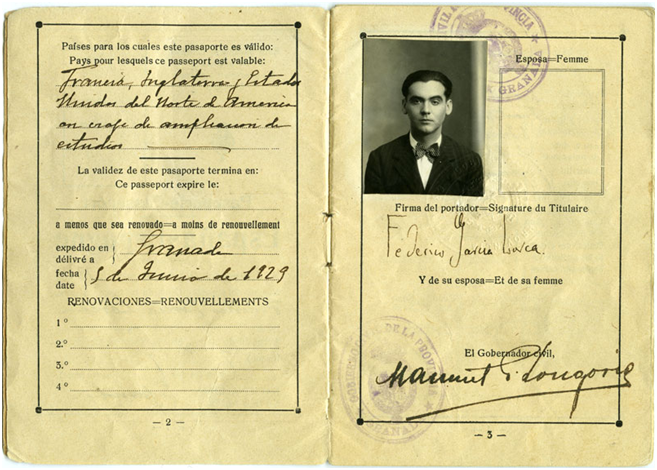 Países para los cuales este pasaporte es válido:
Pays pour lesquels ce passeport est valable:
Francia, Inglaterra y Estados
Unidos del Norte de America
en viaje de ampliacion de
estudios
La validez de este pasaporte termina en:
Ce passeport expire le:
a menos que sea renovado=a moins de renouvellement
expedido en
délivré à
Granada
fecha
date
5 de Junio de 1929
RENOVACIONES=RENOUVELLEMENTS
1º
2.º
3.º
4º
— 2 —
Esposa=Femme
GRANADA
Firma del portador=Signature du Titulaire
Federico García Lorca.
Y de su esposa=Et de sa femme
DE LA PROVINCIA
El Gobernador civil,
— 3 —